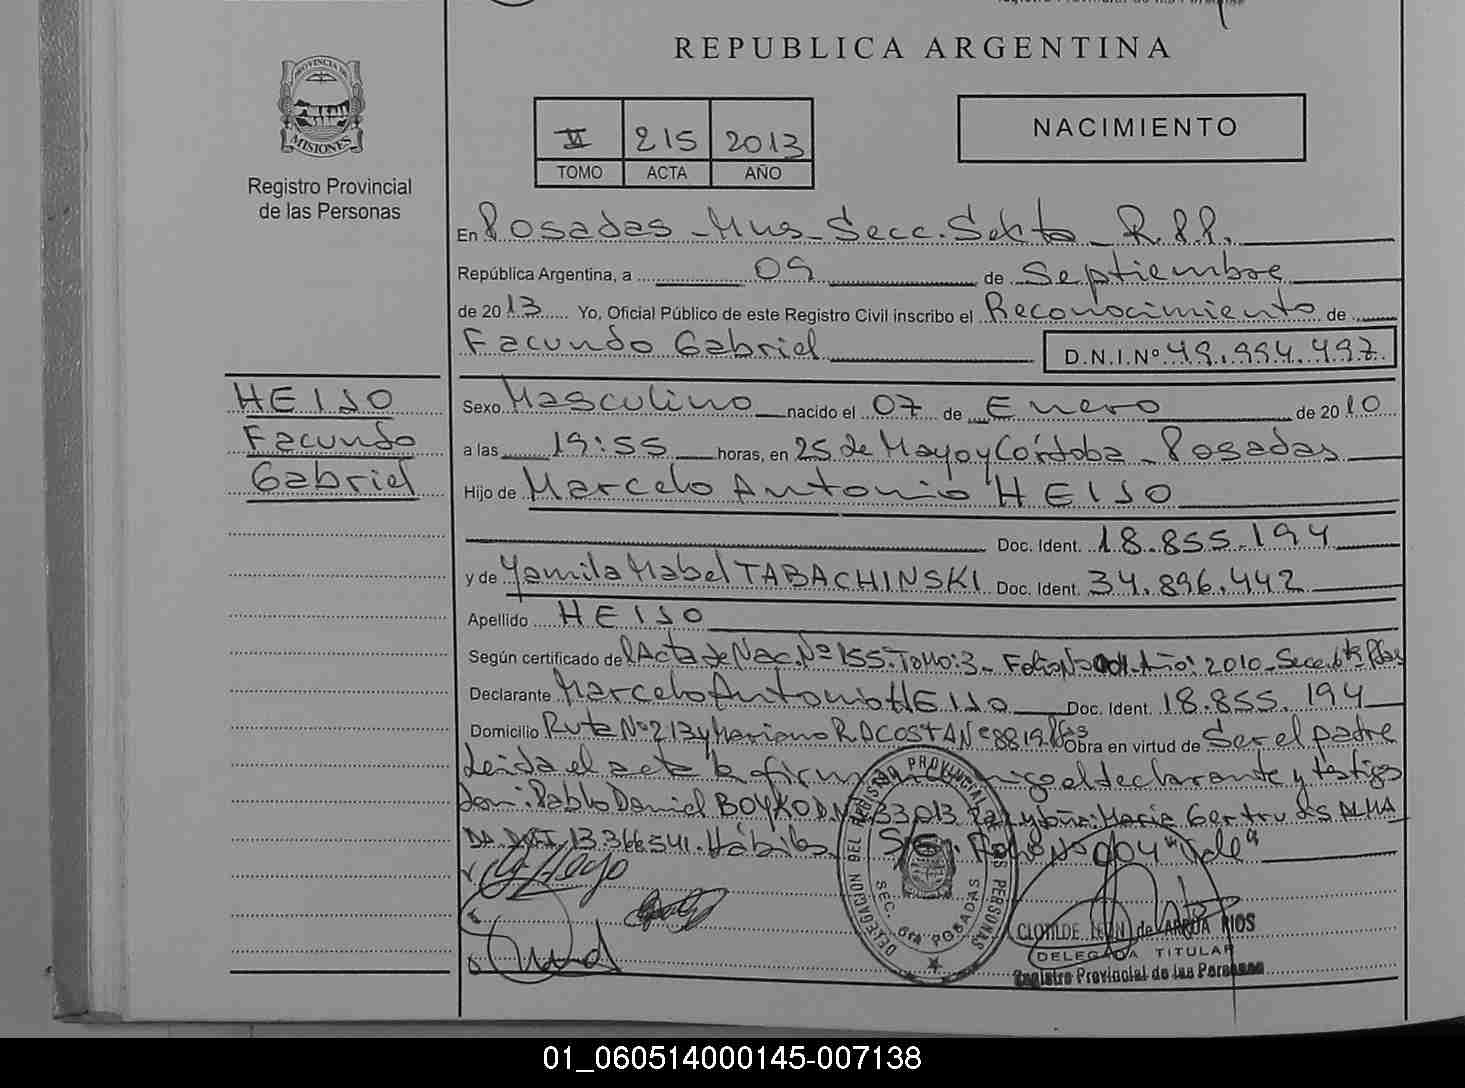 REPUBLICA ARGENTINA
PROVINCIA DE
MISIONES
Registro Provincial
de las Personas
VI 215 2013
TOMO ACTA AÑO
NACIMIENTO
En Posadas - Mnes - Secc. Sexta - R.P.P.
República Argentina, a 09 de Septiembre
de 2013 Yo, Oficial Público de este Registro Civil inscribo el Reconocimiento de
Facundo Gabriel D.N.I.Nº 49.994.497.
HEIJO
Facundo
Gabriel
Sexo Masculino nacido el 07 de Enero de 2010
a las 19:55 horas, en 25 de Mayo y Córdoba - Posadas
Hijo de Marcelo Antonio HEIJO
Doc. Ident. 18.855.194
y de Yamila Mabel TABACHINSKI Doc. Ident. 34.896.442
Apellido HEIJO
Según certificado del Acta de Nac. Nº 155. Tomo: 3 - Folio Nº Año: 2010 - Secc. 6ta Pdas
Declarante Marcelo Antonio HEIJO Doc. Ident. 18.855.194
Domicilio Ruta Nº 213 y Mariano R ACOSTA Nº 8819 Pdas Obra en virtud de Ser el padre
Leida el acta la firma conmigo el declarante y testigo
son: Pablo Daniel BOYKO D.N.I. 33.013 y Dña: Maria Gertrudis ALMA
DA DNI 13.366.541. Hábiles Folio Nº 004 "Vale"
DELEGACION DEL REGISTRO PROVINCIAL DE LAS PERSONAS
SEC. 6ta POSADAS
CLOTILDE de ARRUA RIOS
DELEGADA TITULAR
Registro Provincial de las Personas
01_060514000145-007138